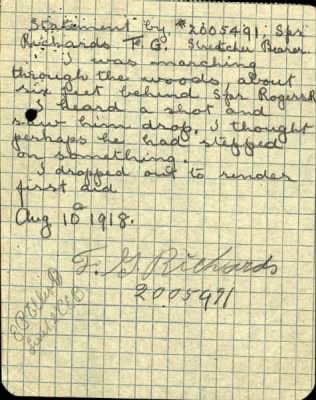 Statement by #2005491, Spr
Richards F. G. Stretcher Bearer
I was marching
through the woods about
six feet behind Spr Rogers R
I heard a shot and
saw him drop. I thought
perhaps he had stepped
on something.
I dropped out to render
first aid
Aug 10 1918.
F. G Richards
2005491